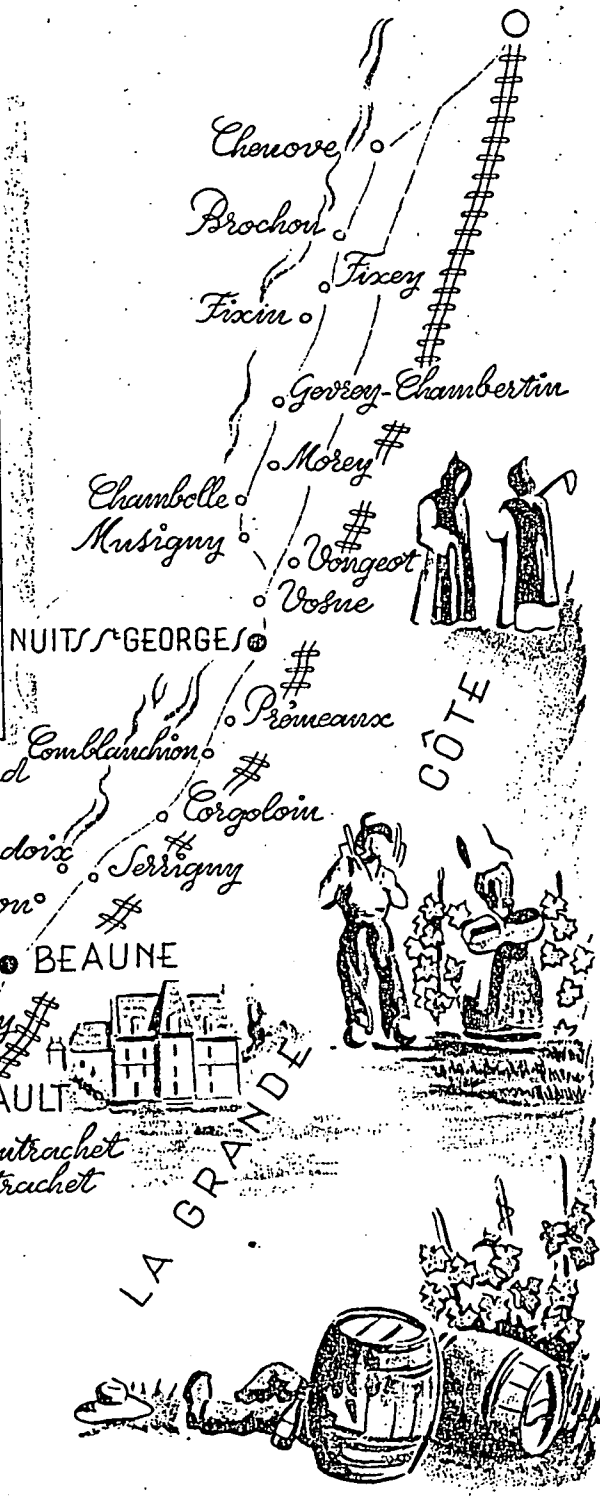 Chenove
Brochon
Fixey
Fixin
Gevrey-Chambertin
Morey
Chambolle
Musigny
Vougeot
Vosne
NUITS St GEORGES
Prémeaux
Comblanchien
d
Corgoloin
doix
Serrigny
on
BEAUNE
y
AULT
ntrachet
trachet
LA GRANDE CÔTE